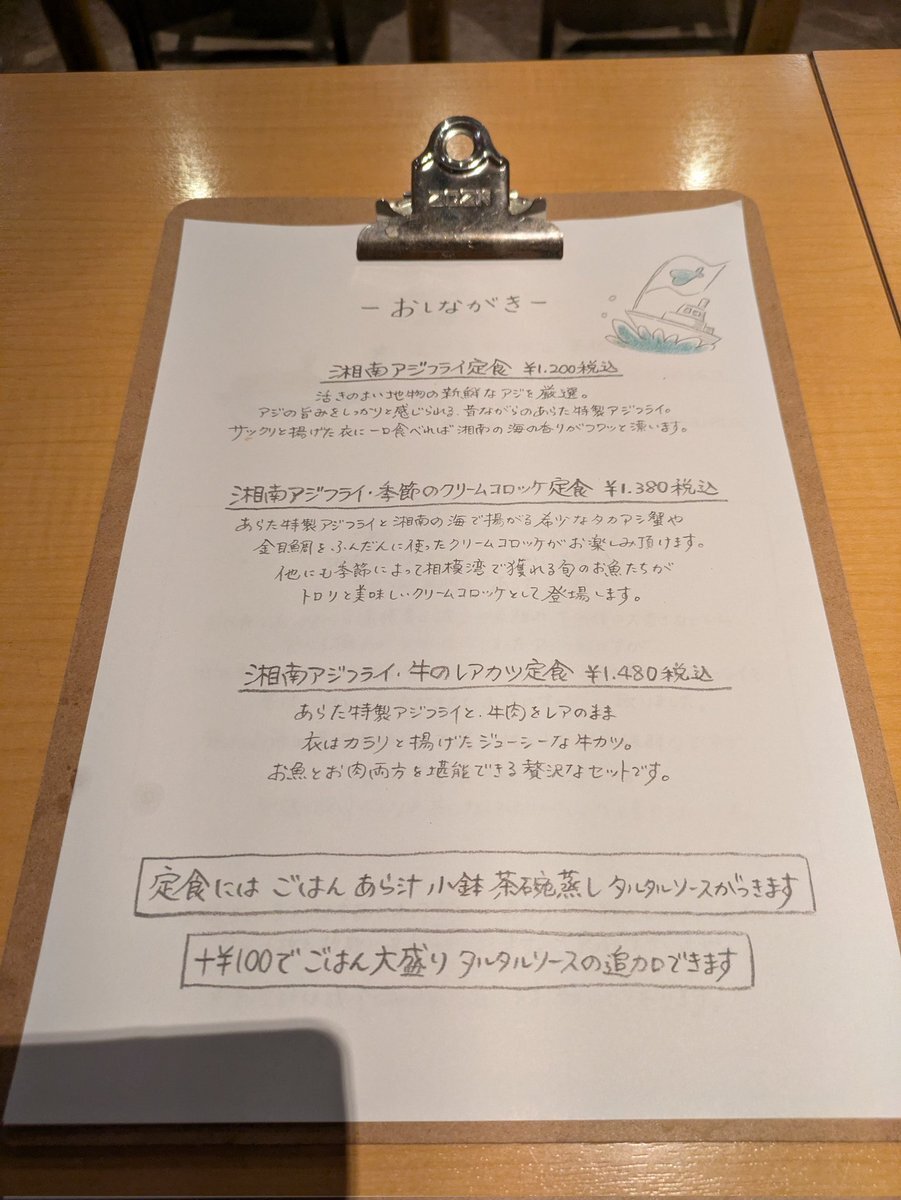 －おしながき－
湘南アジフライ定食 ¥1.200税込
活きのよい地物の新鮮なアジを厳選。
アジの旨みをしっかりと感じられる、昔ながらのあらた特製アジフライ。
サックリと揚げた衣に一口食べれば湘南の海の香りがフワッと漂います。
湘南アジフライ・季節のクリームコロッケ定食 ¥1.380税込
あらた特製アジフライと湘南の海で揚がる希少なタカアシ蟹や
金目鯛をふんだんに使ったクリームコロッケがお楽しみ頂けます。
他にも季節によって相模湾で獲れる旬のお魚たちが
トロリと美味しいクリームコロッケとして登場します。
湘南アジフライ・牛のレアカツ定食 ¥1.480税込
あらた特製アジフライと、牛肉をレアのまま
衣はカラリと揚げたジューシーな牛カツ。
お魚とお肉両方を堪能できる贅沢なセットです。
定食には ごはん あら汁 小鉢 茶碗蒸し タルタルソースがつきます
+¥100で ごはん大盛り タルタルソースの追加できます